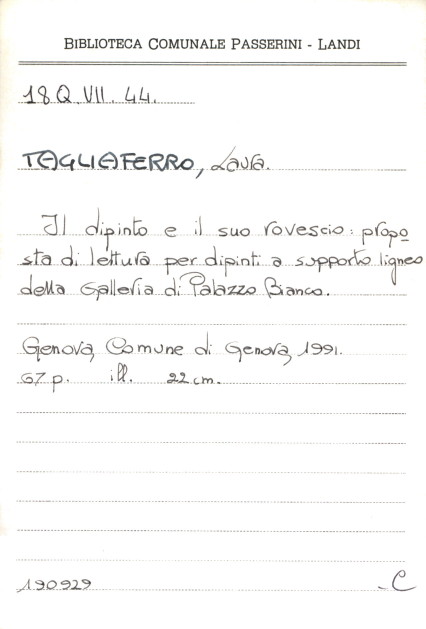 BIBLIOTECA COMUNALE PASSERINI - LANDI
18Q.VII.44.
TAGLIAFERRO, Laura.
Il dipinto e il suo rovescio: propo
sta di lettura per dipinti a supporto ligneo
della Galleria di Palazzo Bianco.
Genova, Comune di Genova, 1991.
67 p. ill. 22 cm.
190929 -C